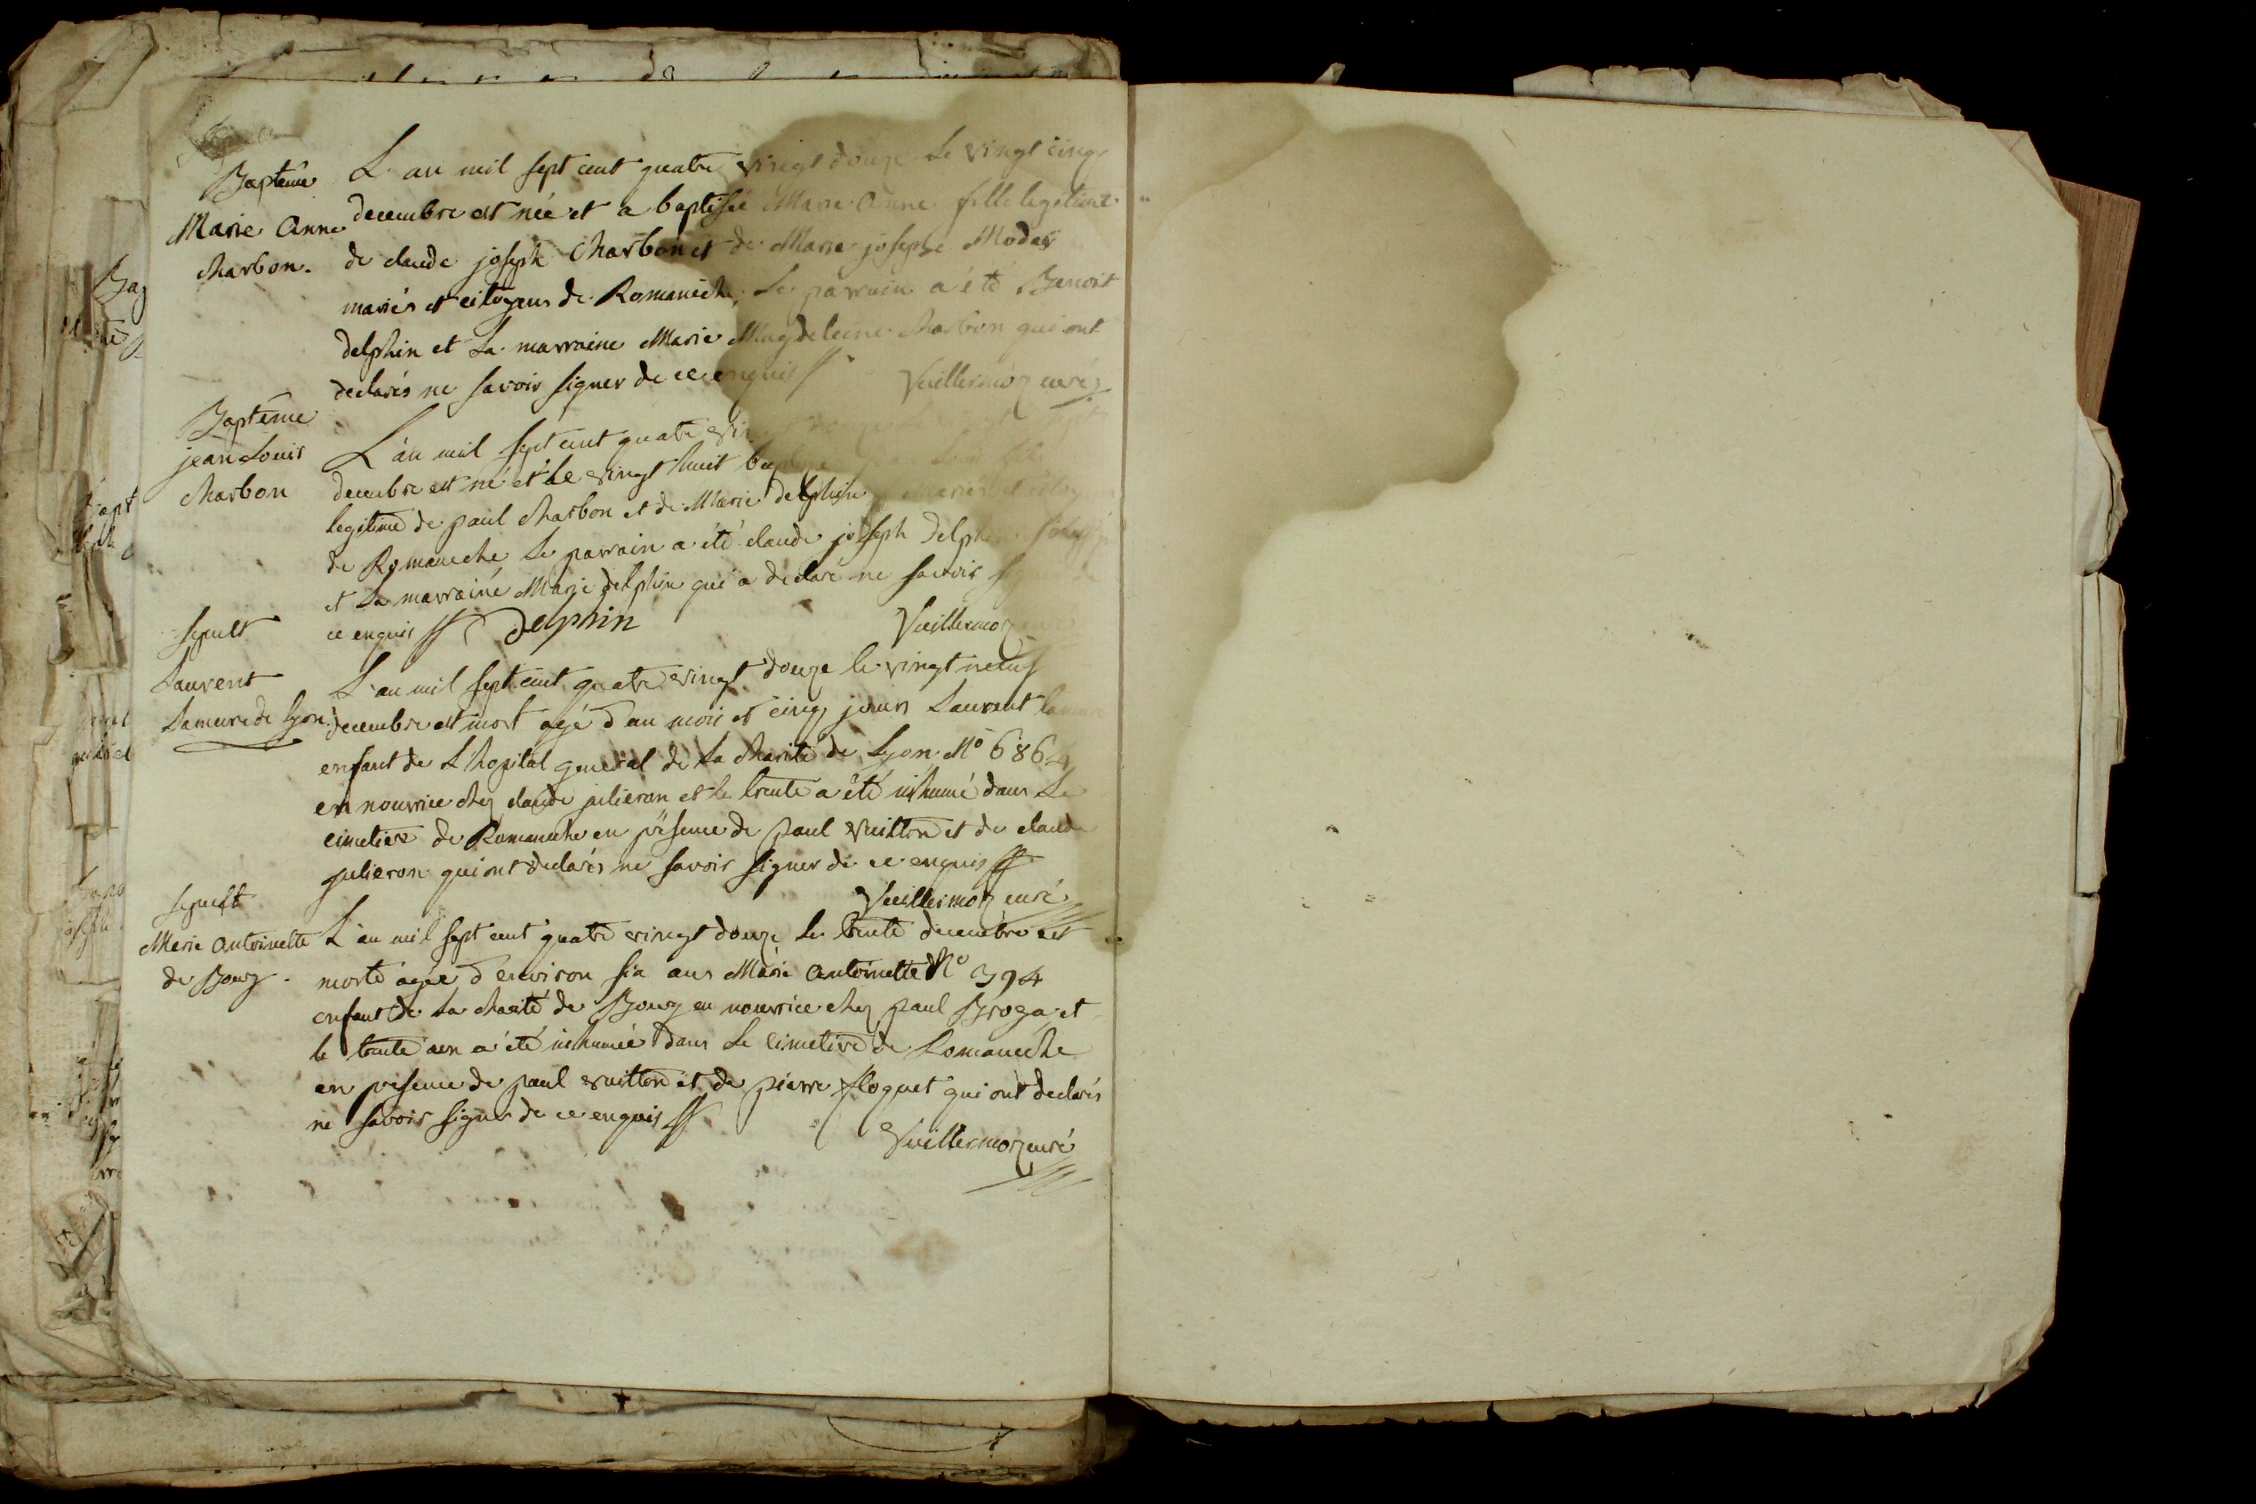 Baptême
Marie Anne
Charbon.
L'an mil sept cent quatre vingt douze Le vingt cinq
decembre est née et a baptisée Marie Anne fille legitime
de claude joseph Charbon et de Marie josephe Modas
mariés et citoyens de Romaneche, Le parrain a été Benoit
delphin et La marraine Marie Magdeleine charbon qui ont
declarés ne savoir signer de ce enquis
Vuillermoz curé
Baptême
jean Louis
charbon
L'an mil sept cent quatre
decembre est né et Le vingt huit
legitime de paul charbon et de Marie delphin
de Romaneche Le parrain a été claude joseph delphin
et La marraine Marie delphin qui a declaré ne savoir
ce enquis Delphin
Vuillermoz
Sepult
Laurent
Lameure de Lyon.
L'an mil sept cent quatre vingt douze le vingt neuf
decembre est mort agé d'un mois et cinq jours Laurent
enfant de L'hopital general de La charité de Lyon No 6864
en nourrice chez claude julieron et le trente a été inhumé dans Le
cimetiere de Romaneche en présence de paul vuitton et de claude
julieron qui ont declarés ne savoir signer de ce enquis
Vuillermoz curé
Sepult
Marie Antoinette
de Bourg.
L'an mil sept cent quatre vingt douze le trente decembre est
morte agée d'environ six ans Marie Antoinette No 394
enfant de La charité de Bourg en nourrice chez paul Broga et
le trente un a été inhumée dans Le cimetiere de Romaneche
en présence de paul vuitton et de pierre floquet qui ont declarés
ne savoir signer de ce enquis
Vuillermoz curé